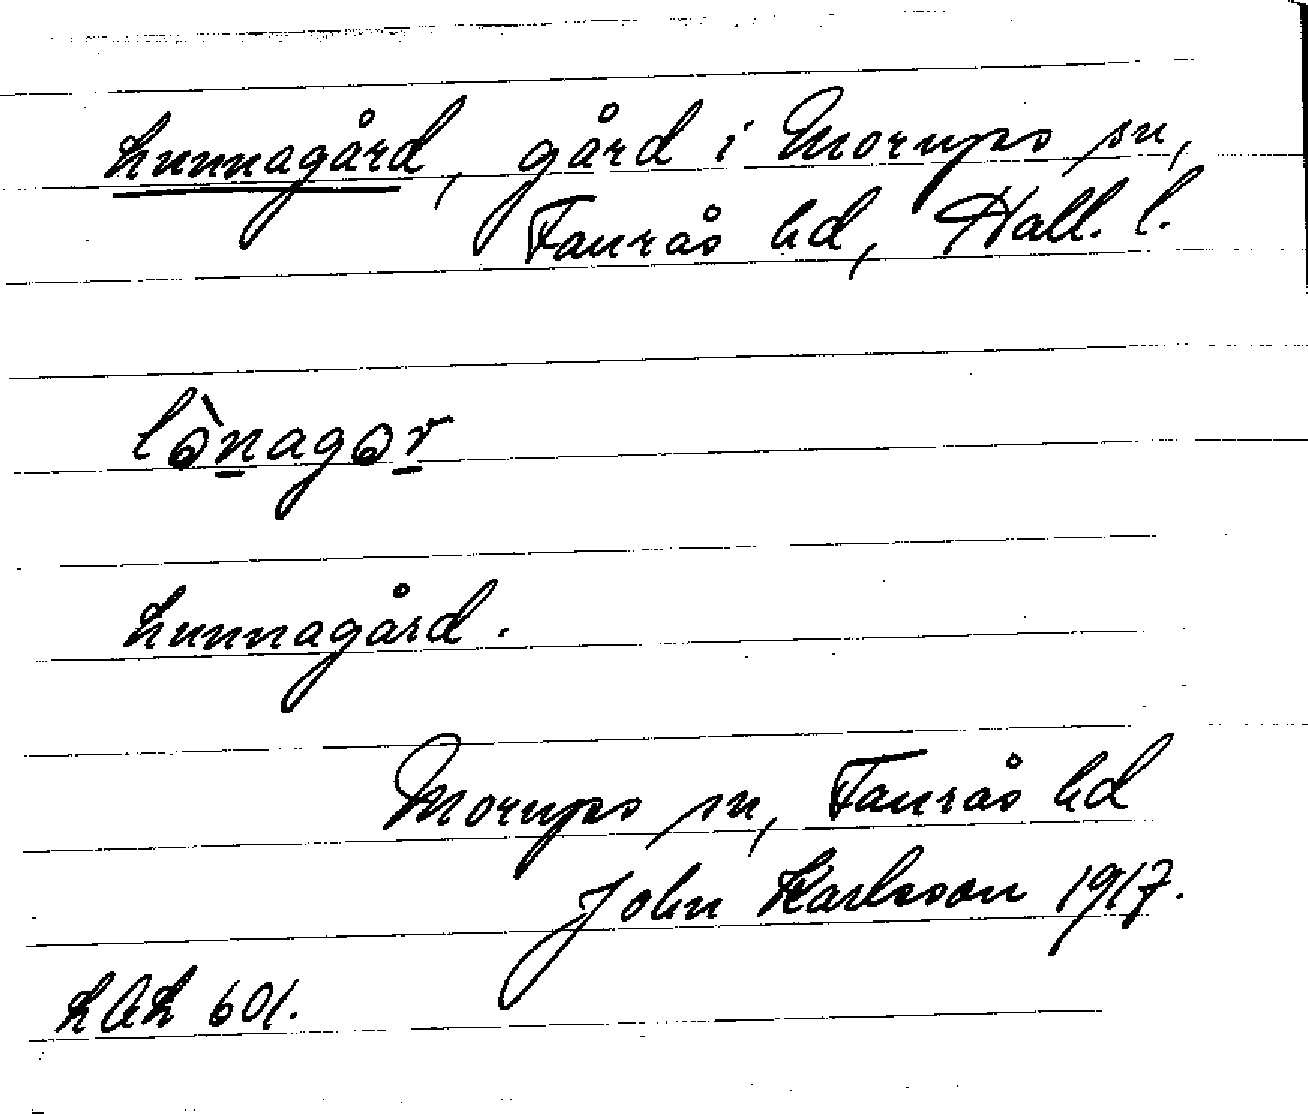 Lunnagård, gård i Morups sn,
Faurås hd, Hall. l.
lònagor
Lunnagård.
Morups sn, Faurås hd
John Karlsson 1917.
LAL 601.